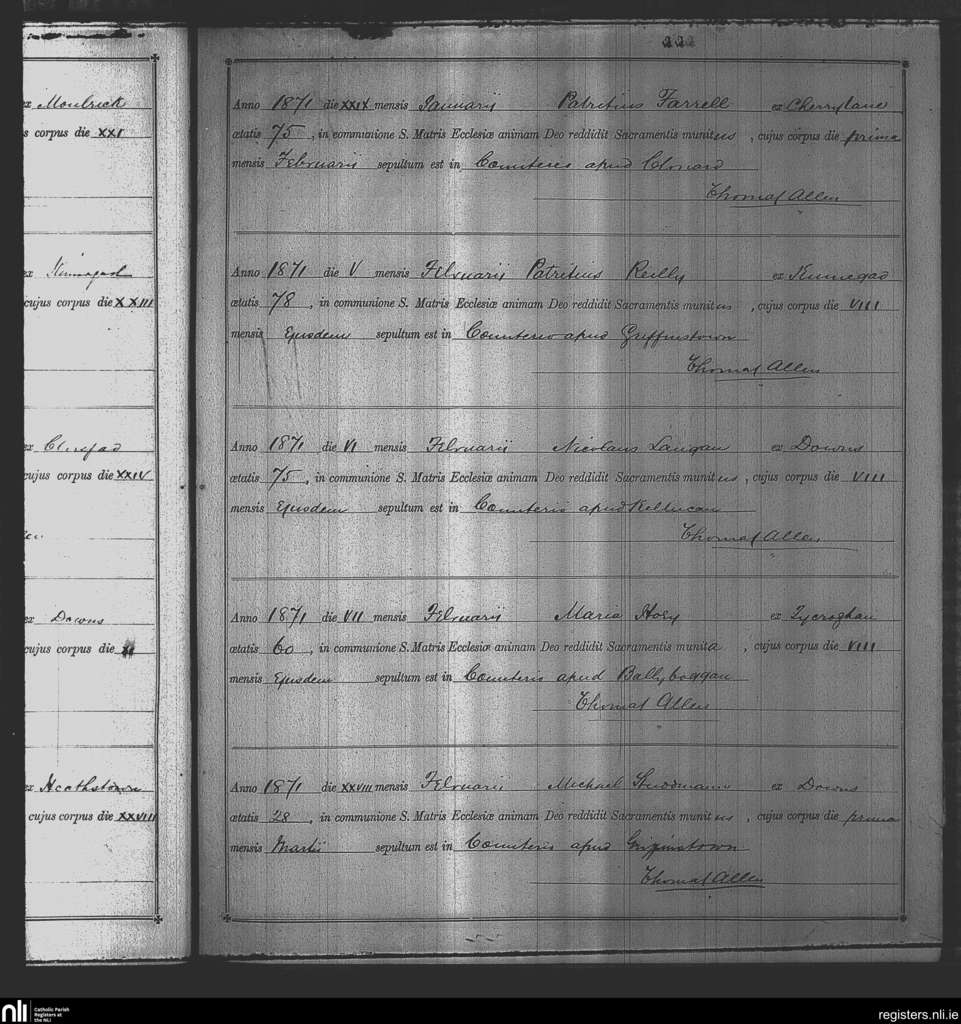 ex Moulrick
s corpus die XXI
ex Kinnegad
cujus corpus die XXIII
ex Clonfad
cujus corpus die XXIV
ex Downs
cujus corpus die
ex Heathstown
cujus corpus die XXVIII
222
Anno 1871 die XXIX mensis Januarii Patritius Farrell ex Cherrylane
ætatis 75, in communione S. Matris Ecclesiæ animam Deo reddidit Sacramentis munitus, cujus corpus die prima
mensis Februarii sepultum est in Cœmeterio apud Clonard
Thomas Allen
Anno 1871 die V mensis Februarii Patritius Reilly ex Kinnegad
ætatis 78, in communione S. Matris Ecclesiæ animam Deo reddidit Sacramentis munitus, cujus corpus die VIII
mensis Ejusdem sepultum est in Cœmeterio apud Griffinstown
Thomas Allen
Anno 1871 die VI mensis Februarii Nicolaus Langan ex Downs
ætatis 75, in communione S. Matris Ecclesiæ animam Deo reddidit Sacramentis munitus, cujus corpus die VIII
mensis Ejusdem sepultum est in Cœmeterio apud Killucan
Thomas Allen
Anno 1871 die VII mensis Februarii Maria Hoey ex Tycroghan
ætatis 60, in communione S. Matris Ecclesiæ animam Deo reddidit Sacramentis munita, cujus corpus die VIII
mensis Ejusdem sepultum est in Cœmeterio apud Ballyboggan
Thomas Allen
Anno 1871 die XXVIII mensis Februarii Michael ex Downs
ætatis 28, in communione S. Matris Ecclesiæ animam Deo reddidit Sacramentis munitus, cujus corpus die prima
mensis Martii sepultum est in Cœmeterio apud Griffinstown
Thomas Allen
nli
Catholic Parish
Registers at
the NLI
registers.nli.ie